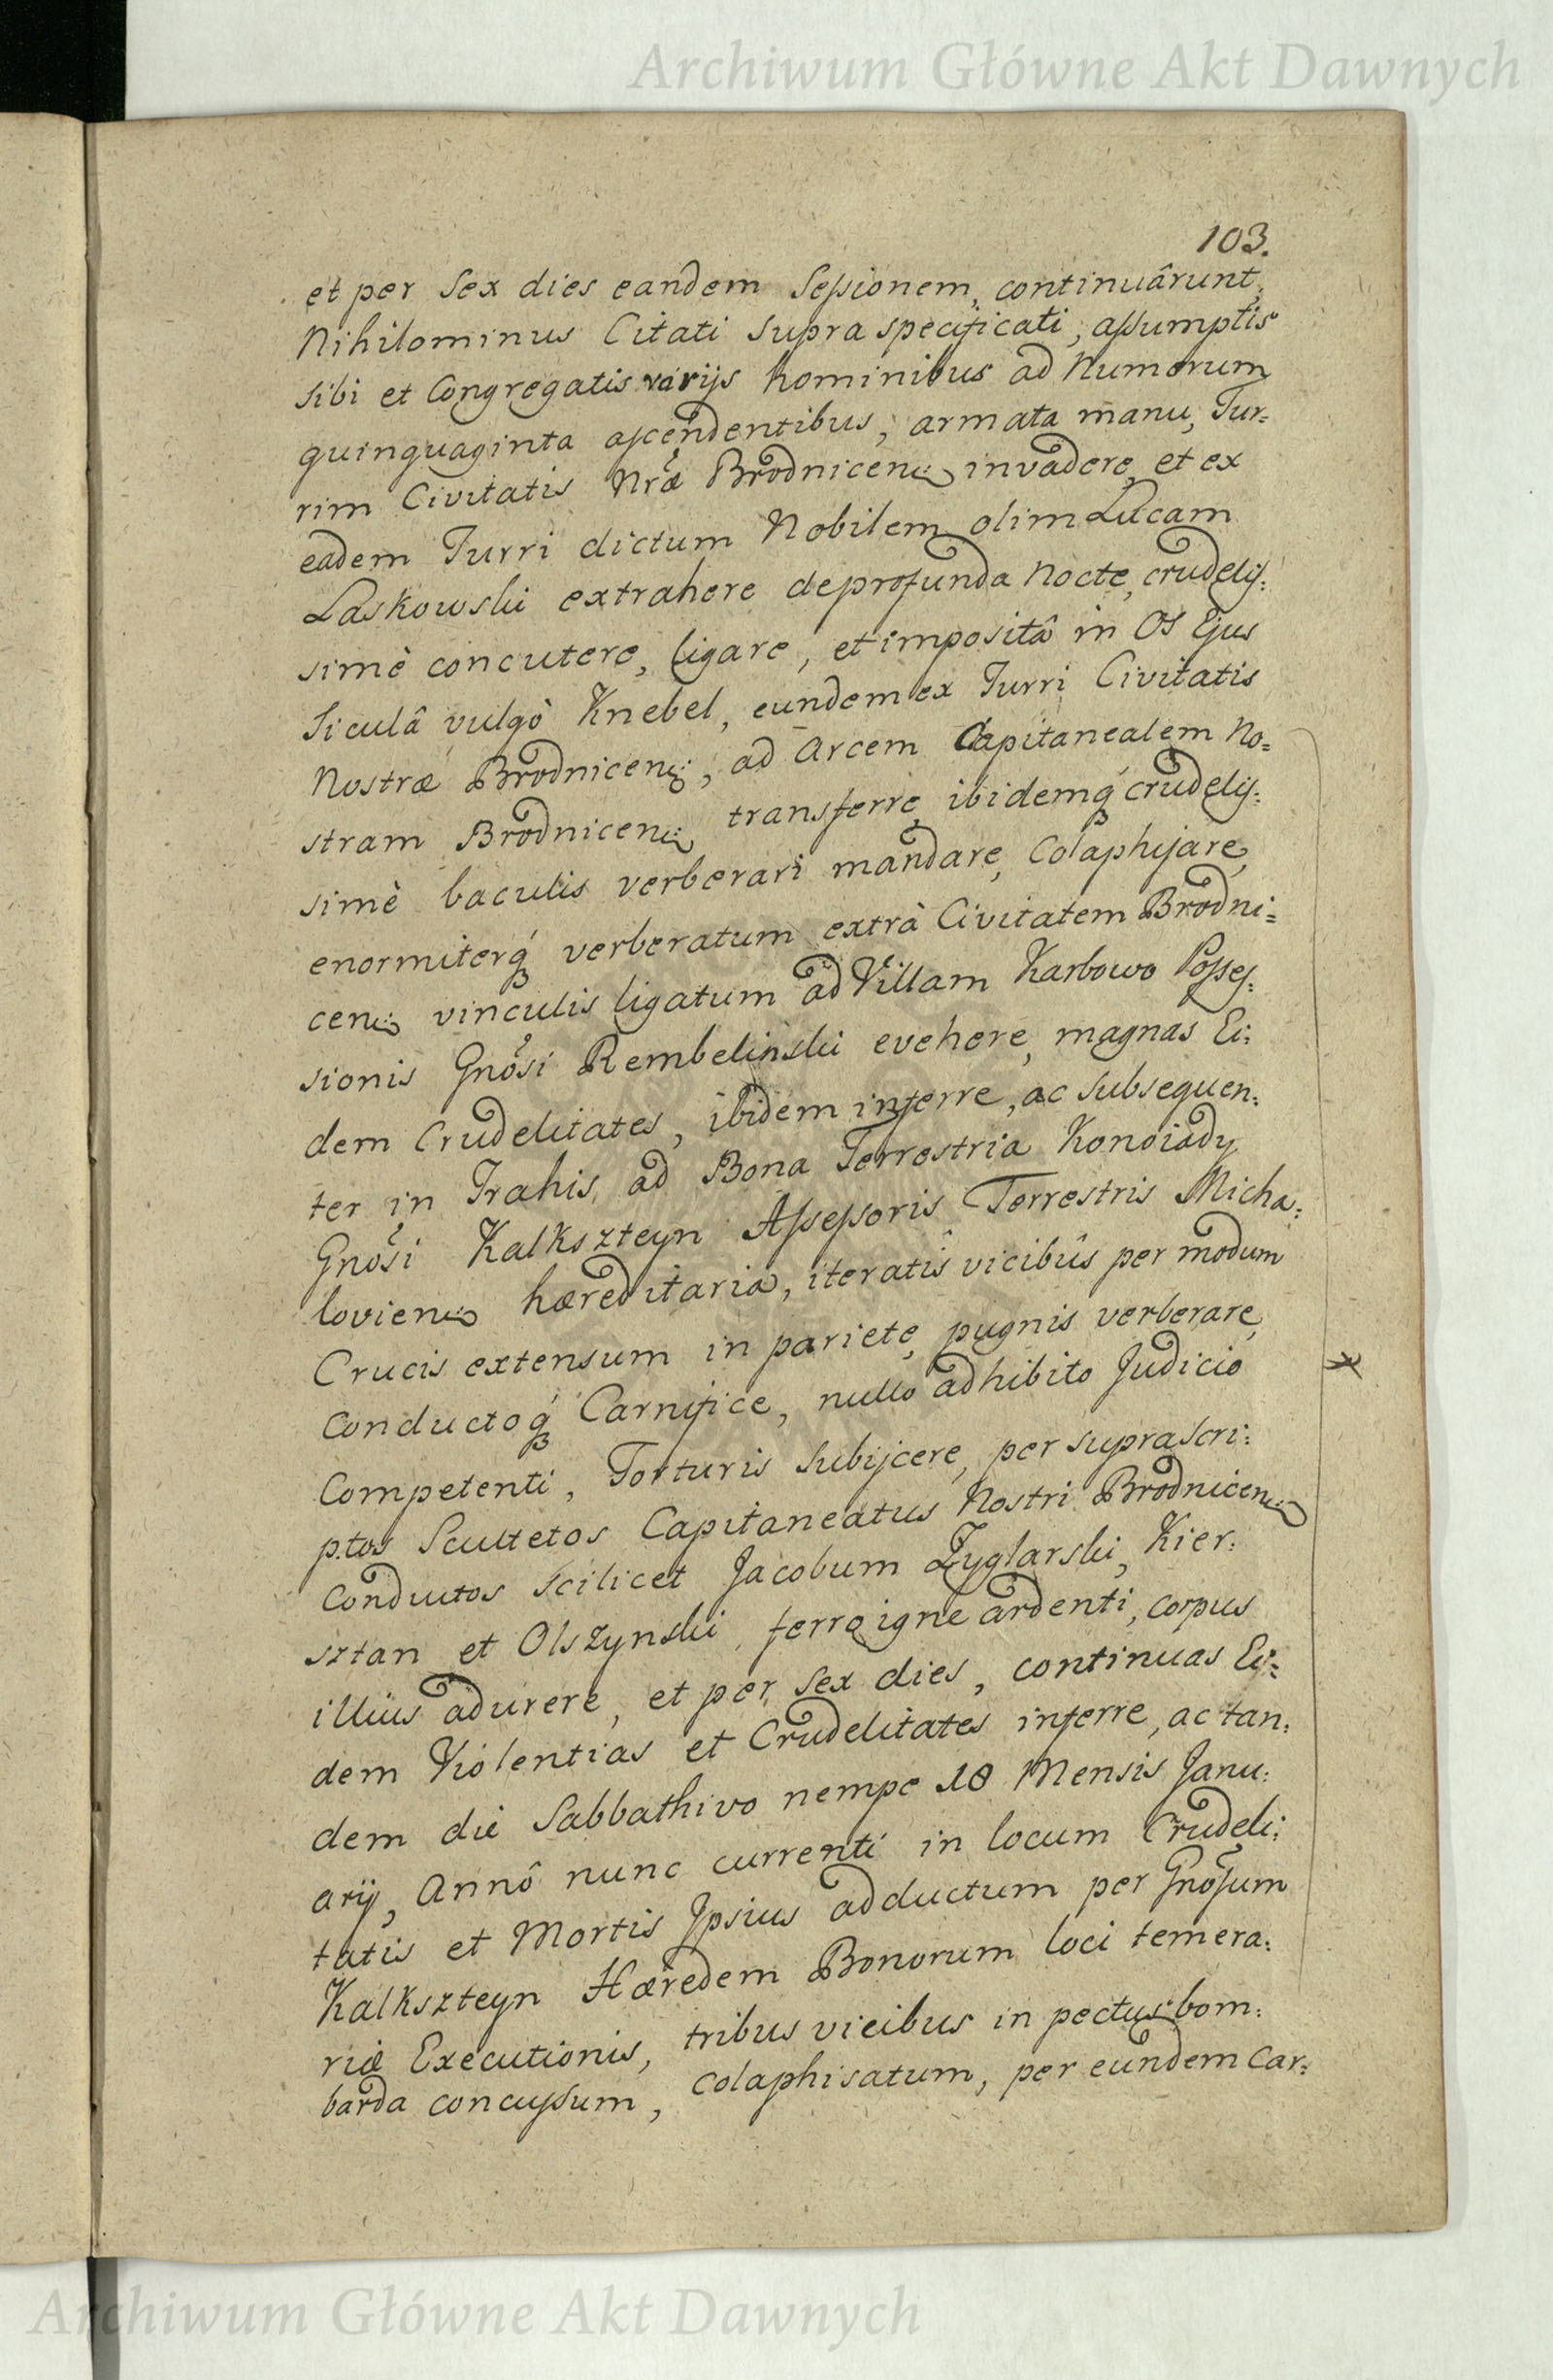 Archiwum Główne Akt Dawnych
103.
et per Sex dies eandem Sessionem, continuârunt,
Nihilominus Citati supra specificati, assumptis
sibi et Congregatis varijs hominibus ad Numerum
quinquaginta ascendentibus, armata manu, Tur=
rim Civitatis Nræ Brodnicen: invadere, et ex
eadem Turri dictum Nobilem olim Lucam
Laskowski extrahere de profunda Nocte, crudelis:
simè concutere, ligare, et impositâ in Os Ejus
Siculâ vulgò Knebel, eundem ex Turri Civitatis
Nostræ Brodnicen:, ad Arcem Capitanealem No=
stram Brodnicen: transferre, ibidemq́ crudelis:
simè baculis verberari mandare, Colaphijare,
enormiterq́ verberatum extrà Civitatem Brodni=
cen: vinculis ligatum ad Villam Karbowo Posses:
sionis Gnosi Rembelinski evehere, magnas Ei:
dem Crudelitates, ibidem inferre, ac Subsequen:
ter in Trahis, ad Bona Terrestria Konoiady
Gnosi Kalkszteyn Assessoris Terrestris Micha:
lovien: hæreditaria, iteratis vicibûs per modum
Crucis extensum in pariete, pugnis verberare,
Conductoq́ Carnifice, nullo adhibito Judicio
Competenti, Torturis Subijcere, per suprascri:
ptos Scultetos Capitaneatus Nostri Brodnicen:
Conductos scilicet Jacobum Zyglarski, Kier:
sztan et Olszynski, ferro igne ardenti, corpus
illius adurere, et per Sex dies, continuas Ei:
dem Violentias et Crudelitates inferre, ac tan:
dem die Sabbathivo nempe 18 Mensis Janu:
arij, Annô nunc currenti in locum Crudeli:
tatis et Mortis Ipsius adductum per Gnosum
Kalkszteyn Hæredem Bonorum loci temera:
riæ Executionis, tribus vicibus in pectus bom:
barda concussum, Colaphisatum, per eundem Car:
Archiwum Główne Akt Dawnych